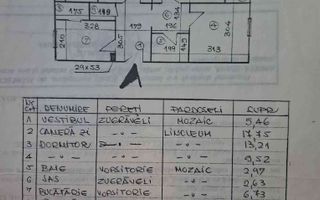 5 175 5 149
134
328 179 136 30.4
210 7 30.5 199 149 313
29×53
Nr. Crt. DENUMIRE PERETI PARDOSELI SUPR/
1 VESTIBUL ZUGRĂVELI MOZAIC 5,46
2 CAMERĂ ZI -"- LINOLEUM 17,75
3 DORMITOR -"- 13,21
4 -"- -"- 9,52
5 BAIE VOPSITORIE MOZAIC 2,97
6 SAS ZUGRĂVELI 2,63
7 BUCĂTĂRIE VOPSITORIE -"- 6,73